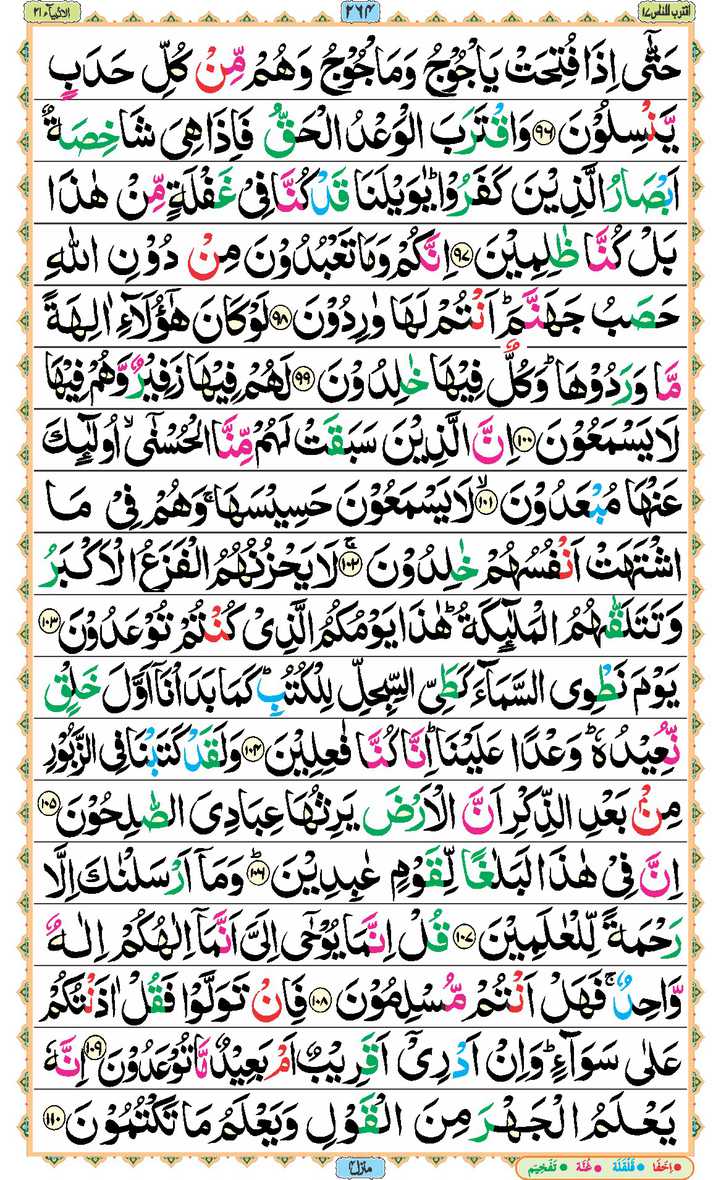 اقترب للناس ١٧ ٢٦٤ الانبياء ٢١
حَتّٰۤى اِذَا فُتِحَتْ يَاْجُوْجُ وَمَاْجُوْجُ وَهُمْ مِّنْ كُلِّ حَدَبٍ
يَّنْسِلُوْنَ ﴿٩٦﴾ وَاقْتَرَبَ الْوَعْدُ الْحَقُّ فَاِذَا هِىَ شَاخِصَةٌ
اَبْصَارُ الَّذِيْنَ كَفَرُوْا ؕ يٰوَيْلَنَا قَدْ كُنَّا فِىْ غَفْلَةٍ مِّنْ هٰذَا
بَلْ كُنَّا ظٰلِمِيْنَ ﴿٩٧﴾ اِنَّكُمْ وَمَا تَعْبُدُوْنَ مِنْ دُوْنِ اللّٰهِ
حَصَبُ جَهَنَّمَ ؕ اَنْتُمْ لَهَا وٰرِدُوْنَ ﴿٩٨﴾ لَوْ كَانَ هٰۤؤُلَآءِ اٰلِهَةً
مَّا وَرَدُوْهَا ؕ وَكُلٌّ فِيْهَا خٰلِدُوْنَ ﴿٩٩﴾ لَهُمْ فِيْهَا زَفِيْرٌ وَّهُمْ فِيْهَا
لَا يَسْمَعُوْنَ ﴿١٠٠﴾ اِنَّ الَّذِيْنَ سَبَقَتْ لَهُمْ مِّنَّا الْحُسْنٰٓى ۙ اُولٰٓئِكَ
عَنْهَا مُبْعَدُوْنَ ﴿١٠١﴾ ۙ لَا يَسْمَعُوْنَ حَسِيْسَهَا ۚ وَهُمْ فِىْ مَا
اشْتَهَتْ اَنْفُسُهُمْ خٰلِدُوْنَ ﴿١٠٢﴾ ۚ لَا يَحْزُنُهُمُ الْفَزَعُ الْاَكْبَرُ
وَتَتَلَقّٰٮهُمُ الْمَلٰٓئِكَةُ ؕ هٰذَا يَوْمُكُمُ الَّذِىْ كُنْتُمْ تُوْعَدُوْنَ ﴿١٠٣﴾
يَوْمَ نَطْوِى السَّمَآءَ كَطَىِّ السِّجِلِّ لِلْكُتُبِ ؕ كَمَا بَدَاْنَاۤ اَوَّلَ خَلْقٍ
نُّعِيْدُهٗ ؕ وَعْدًا عَلَيْنَا ؕ اِنَّا كُنَّا فٰعِلِيْنَ ﴿١٠٤﴾ وَلَقَدْ كَتَبْنَا فِى الزَّبُوْرِ
مِنْۢ بَعْدِ الذِّكْرِ اَنَّ الْاَرْضَ يَرِثُهَا عِبَادِىَ الصّٰلِحُوْنَ ﴿١٠٥﴾
اِنَّ فِىْ هٰذَا لَبَلٰغًا لِّقَوْمٍ عٰبِدِيْنَ ﴿١٠٦﴾ ؕ وَمَاۤ اَرْسَلْنٰكَ اِلَّا
رَحْمَةً لِّلْعٰلَمِيْنَ ﴿١٠٧﴾ قُلْ اِنَّمَا يُوْحٰۤى اِلَىَّ اَنَّمَاۤ اِلٰهُكُمْ اِلٰهٌ
وَّاحِدٌ ۚ فَهَلْ اَنْتُمْ مُّسْلِمُوْنَ ﴿١٠٨﴾ فَاِنْ تَوَلَّوْا فَقُلْ اٰذَنْتُكُمْ
عَلٰى سَوَآءٍ ؕ وَاِنْ اَدْرِىْۤ اَقَرِيْبٌ اَمْ بَعِيْدٌ مَّا تُوْعَدُوْنَ ﴿١٠٩﴾ اِنَّهٗ
يَعْلَمُ الْجَهْرَ مِنَ الْقَوْلِ وَيَعْلَمُ مَا تَكْتُمُوْنَ ﴿١١٠﴾
منزل ٤ اِخْفَا قَلْقَلَة غُنَّة تَفْخِيْم